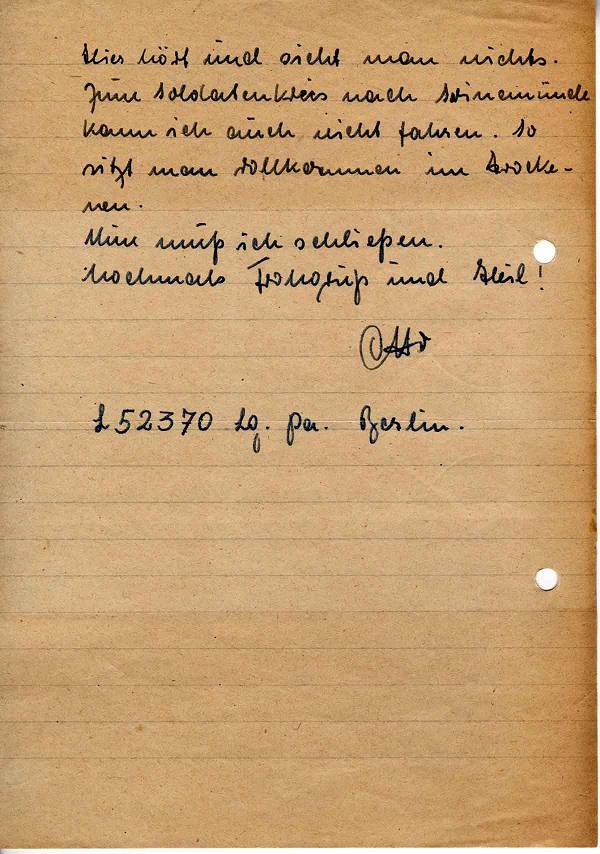 Hier hört und sieht man nichts.
Zum Soldatenkreis nach Swinemünde
kann ich auch nicht fahren. So
sitzt man vollkommen im Trocke-
nen.
Nun muß ich schließen.
Nochmals Frohgruß und Heil!
Otto
L52370 Lg. pa. Berlin.